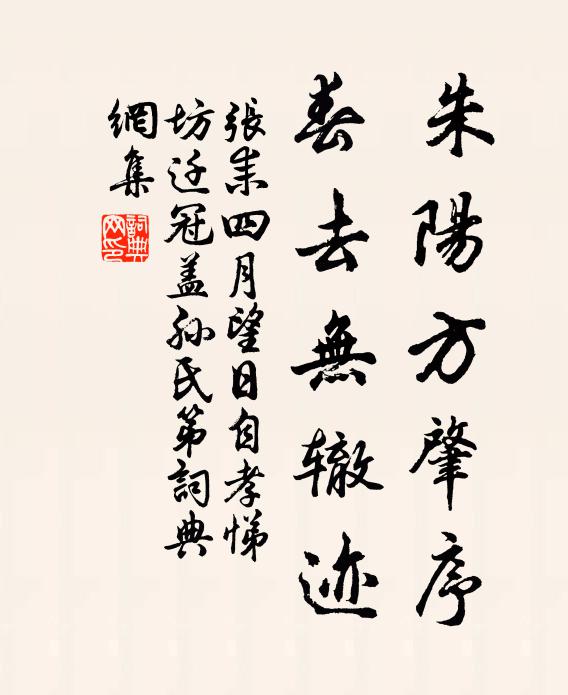 朱陽方肇序
春去無辙迹
張耒四月望日自孝悌
坊迁冠盖孙氏第詞典
網集
詞典網印